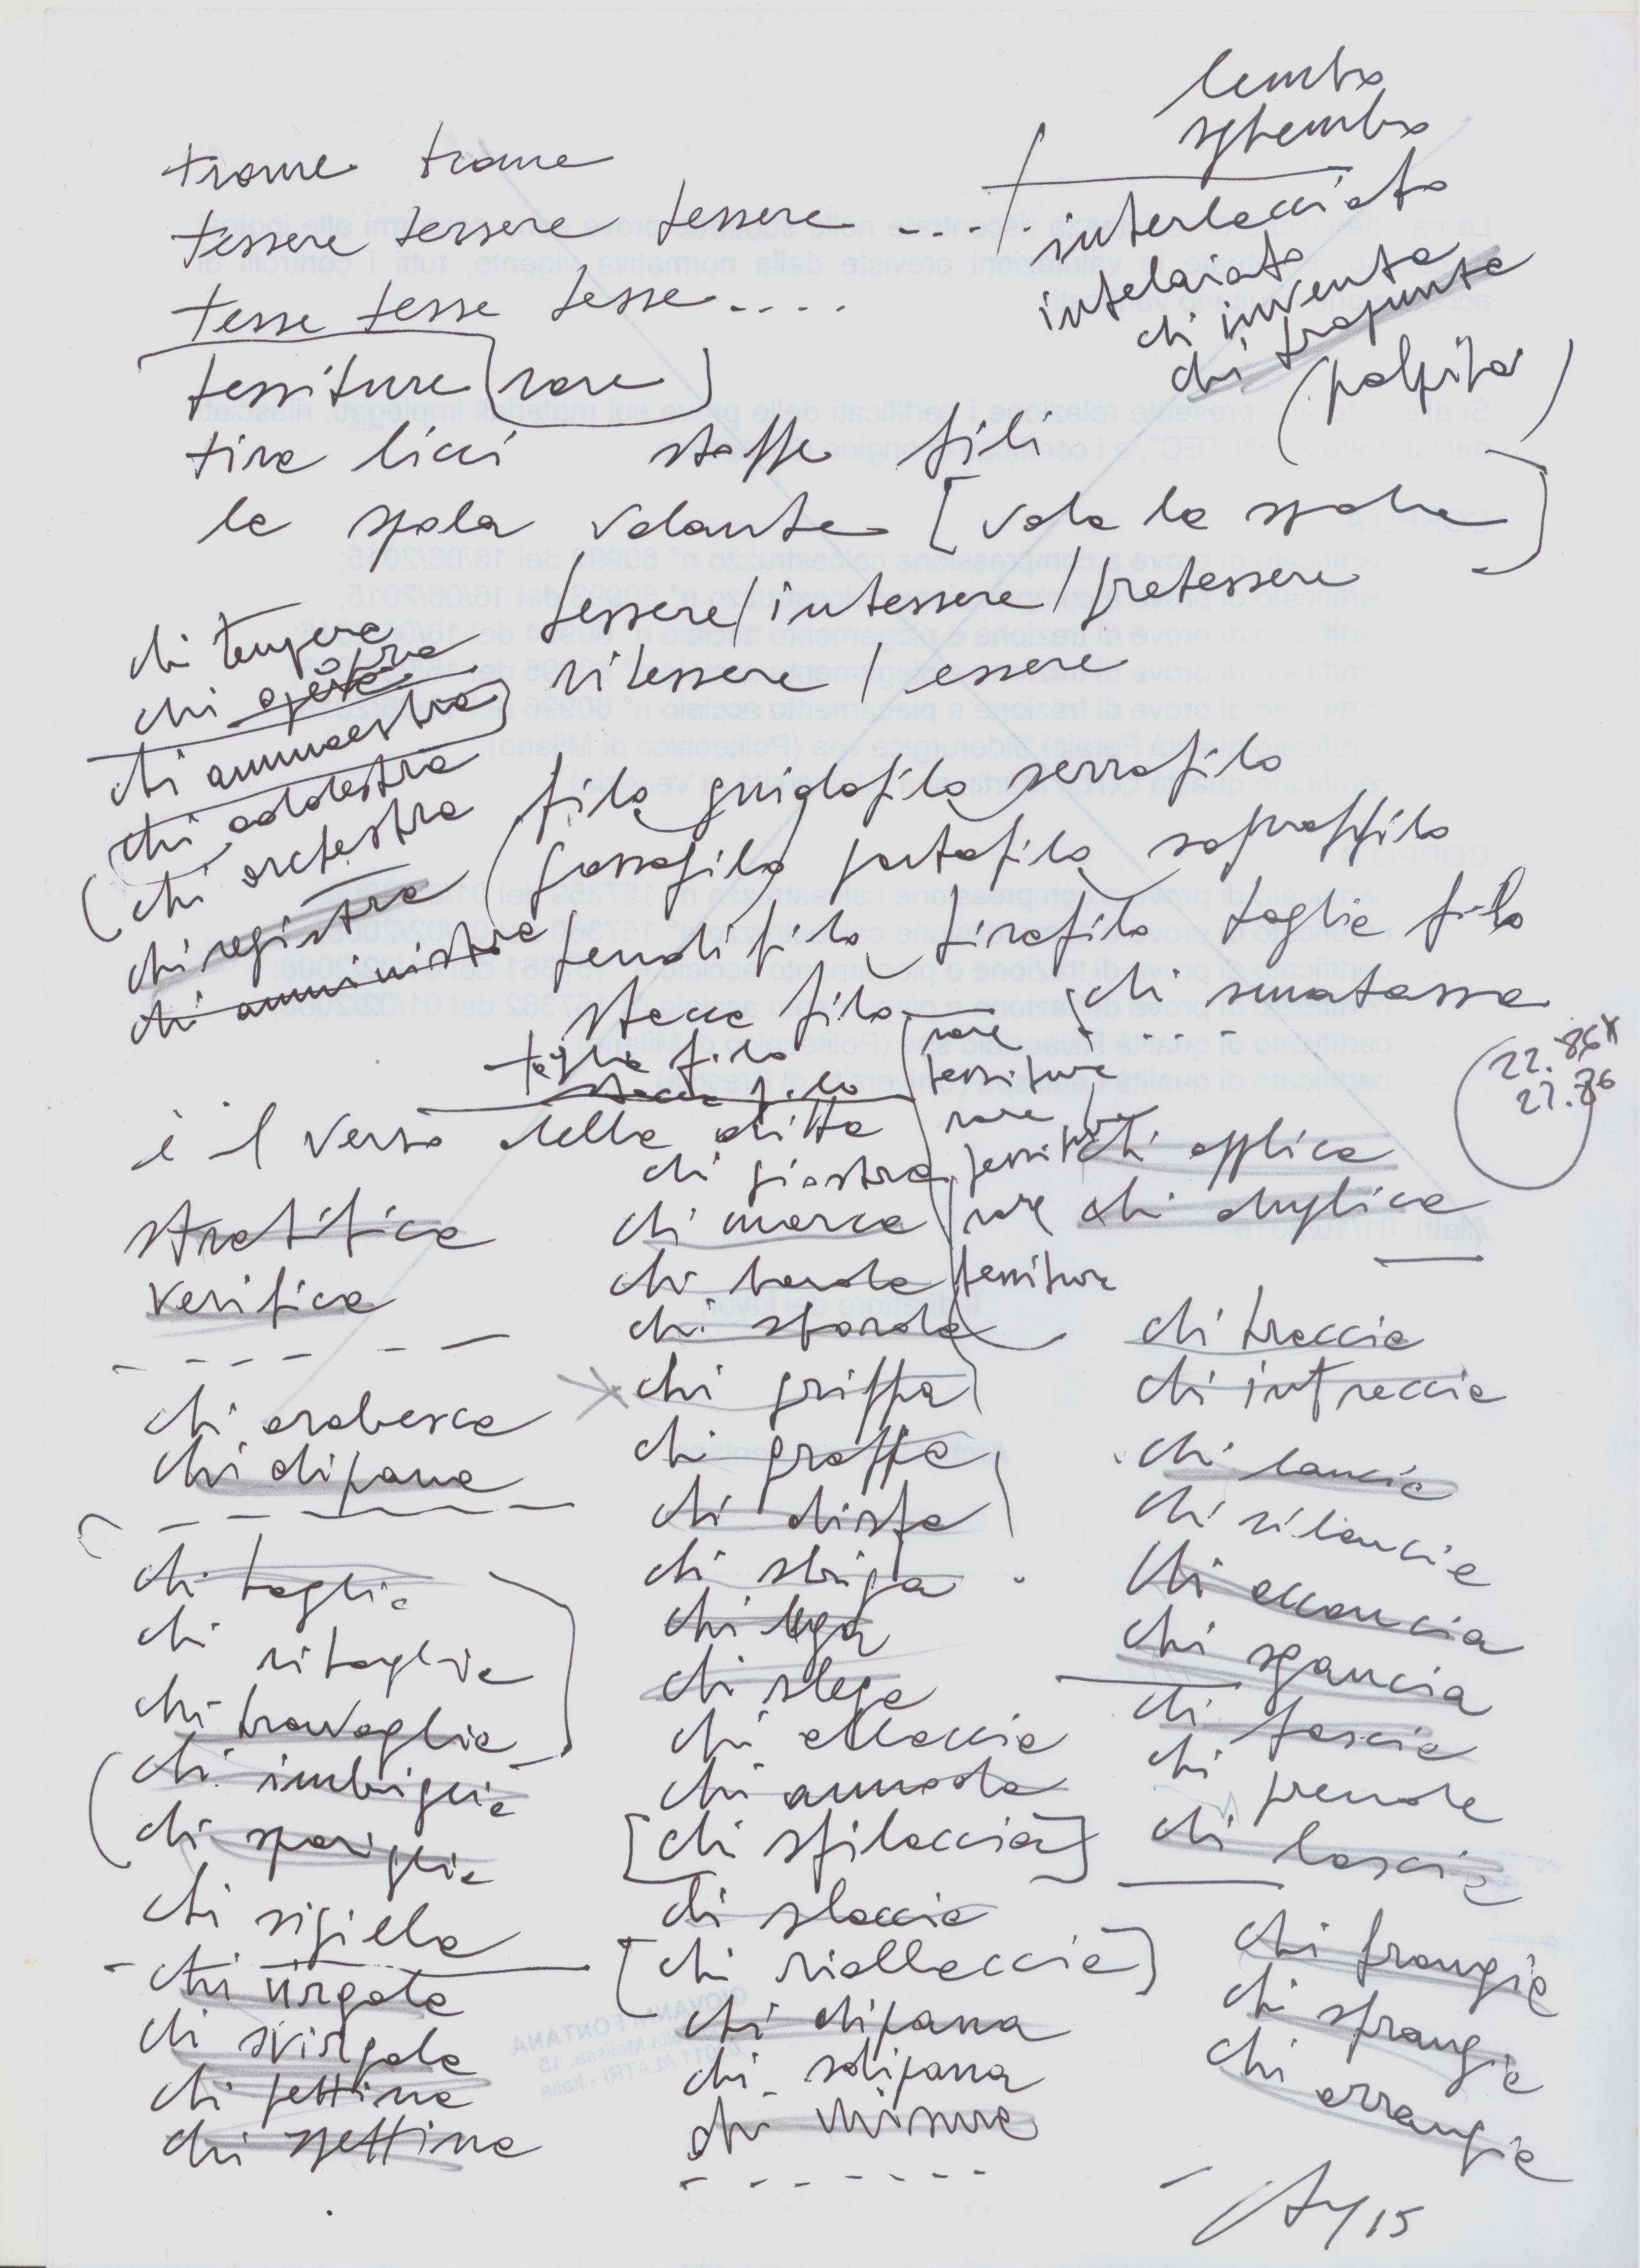 lembo
sghembo
trame trame
tessere tessere tessere ....
tesse tesse tesse ....
interlacciato
intelaiato
chi inventa
chi trapunta
(palpita)
tessiture (rare)
tira licci staffe fili
la spola volante [vola la spola]
tessere / intessere / pretessere
ritessere / essere
chi tempera
chi opera
chi ammaestra
chi addestra
(chi orchestra
chi registra
chi amministra
filo guidafilo serrafilo
(passafilo) portafilo sopraffilo
tendifilo tirafilo taglia filo
stacca filo
chi smatassa
taglia filo
stacca filo
rare
tessiture
rare
tessiture
rare
tessiture
22.86*
è il verso della ditta
stratifica
verifica
chi arabesca
chi dipana
chi taglia
chi ritaglia
chi travaglia
chi imbriglia
chi spariglia
chi sigilla
chi virgola
chi svirgola
chi pettina
chi spettina
chi piastra
chi marca
chi borda
chi sborda
chi griffa
chi graffa
chi disfa
chi sbriga
chi lega
chi slega
chi allaccia
chi annoda
[chi sfilaccia]
chi slaccia
[chi riallaccia]
chi dipana
chi misura
chi applica
chi duplica
chi treccia
chi intreccia
chi lancia
chi rilancia
chi acconcia
chi sgancia
chi fascia
chi prende
chi lascia
chi frangia
chi sprangia
chi arrangia
15
GIOVANNI FONTANA